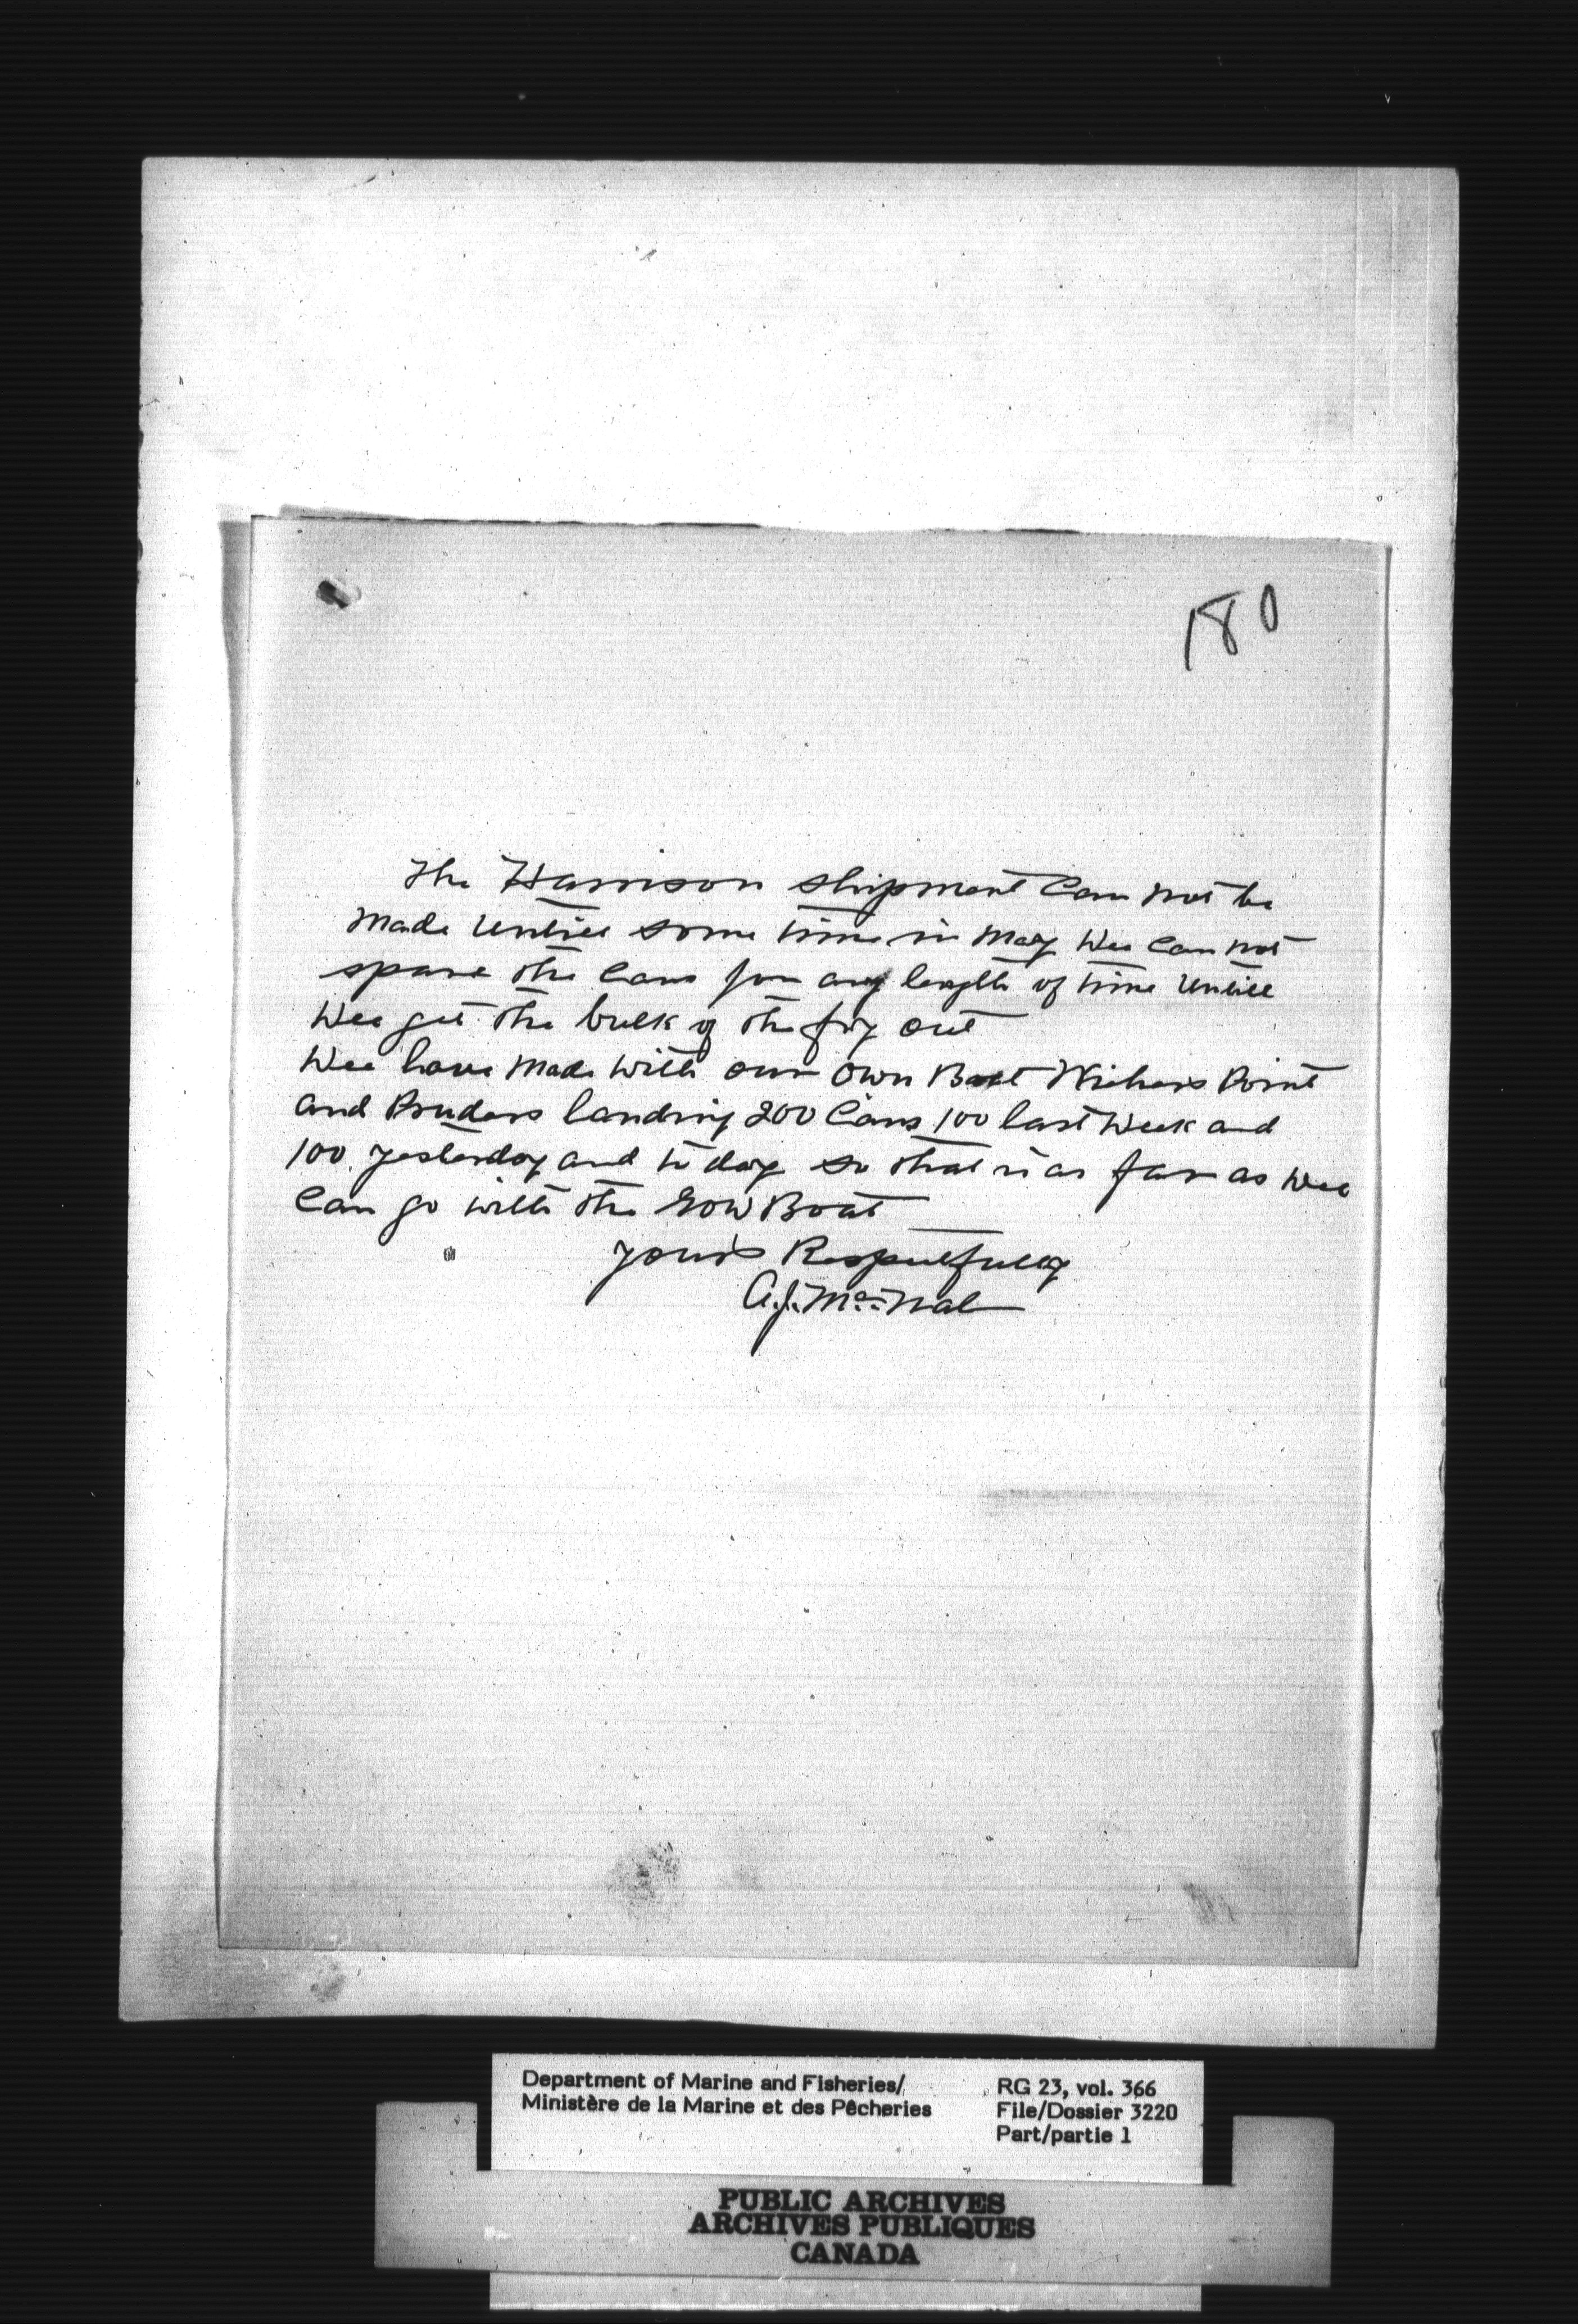 180
The Harrison shipment Can not be
Made Untill some time in May Wee Can not
spare the Cans for any length of time Untill
Wee get the bulk of the fry out
Wee have Made With our Own Boat Point
and landing 200 Cans 100 last Week and
100 yesterday and to day so that is as far as Wee
Can go with the Row Boat
yours Respectfully
A.J.
Department of Marine and Fisheries/
Ministère de la Marine et des Pêcheries
RG 23, vol. 366
File/Dossier 3220
Part/partie 1
PUBLIC ARCHIVES
ARCHIVES PUBLIQUES
CANADA